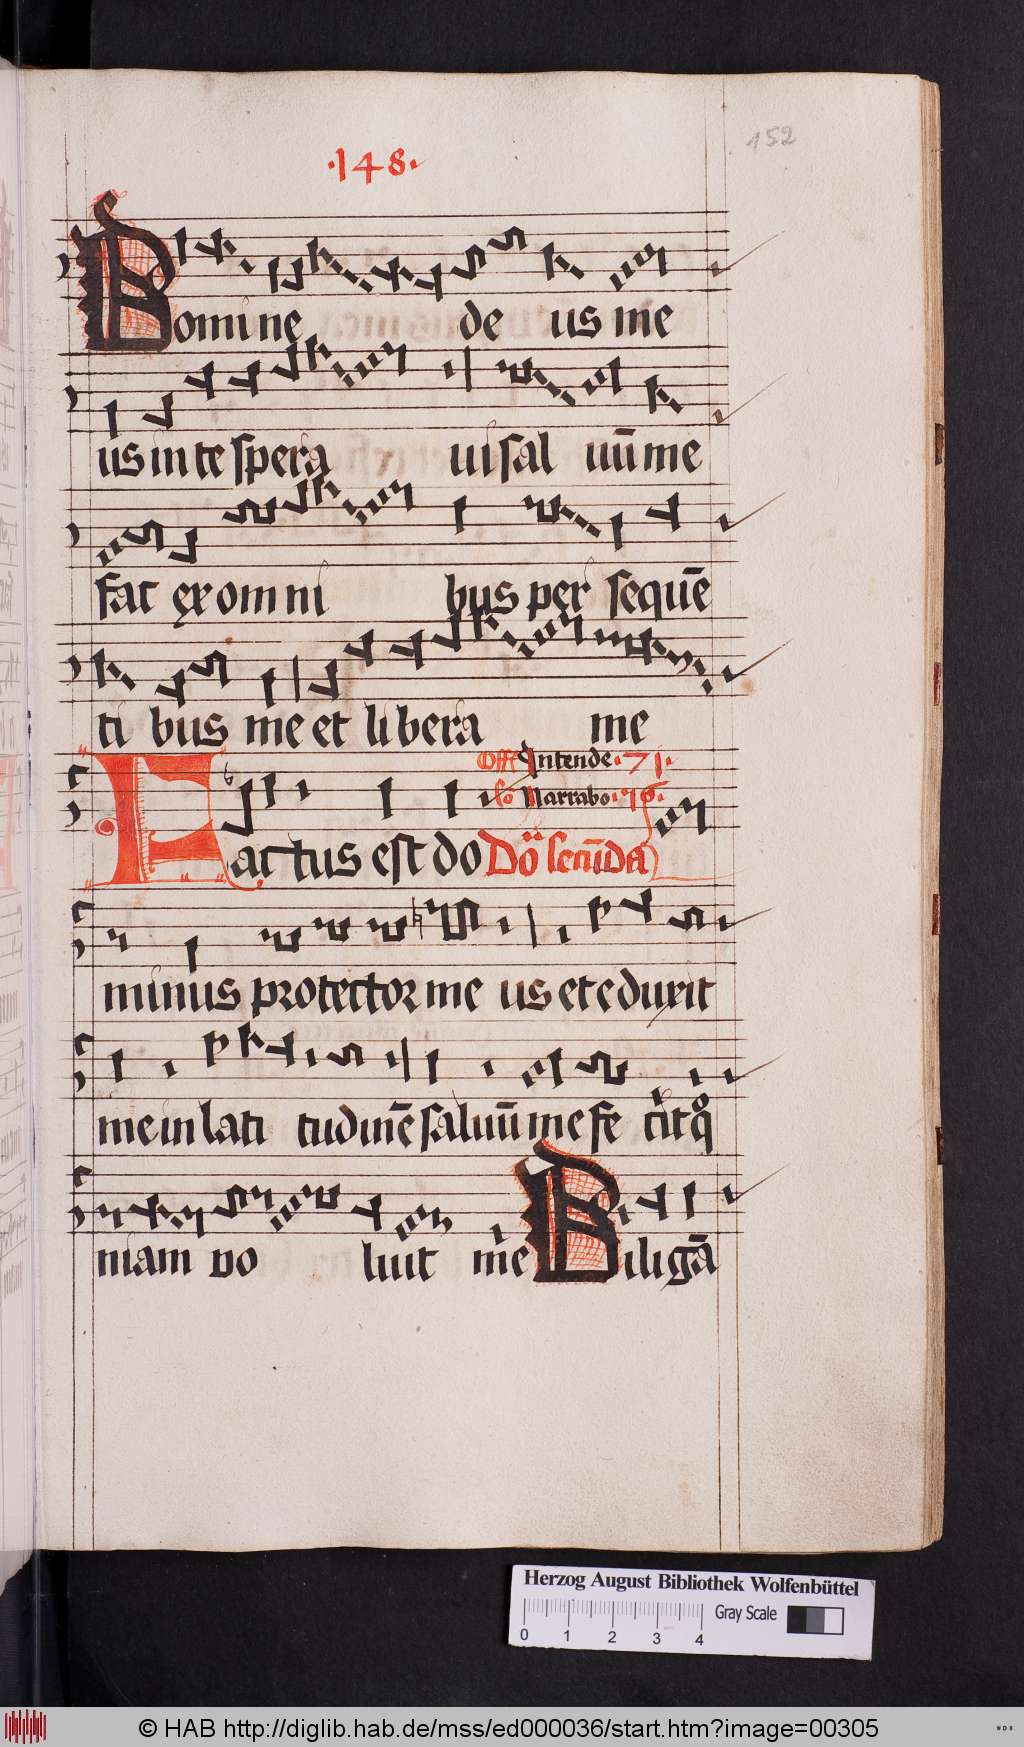 ·148·
152
Domine de us me
us in te spera ui sal uū me
fac ex omni bus per sequē
ti bus me et libera me
Offe Intende·71·
Co Narrabo·76·
Factus est do Dō̈ secūda
minus protector me us et eduxit
me in lati tudinē saluū me fe cit qͦ
niam vo luit me Diligā
Herzog August Bibliothek Wolfenbüttel
Gray Scale
0 1 2 3 4
© HAB http://diglib.hab.de/mss/ed000036/start.htm?image=00305